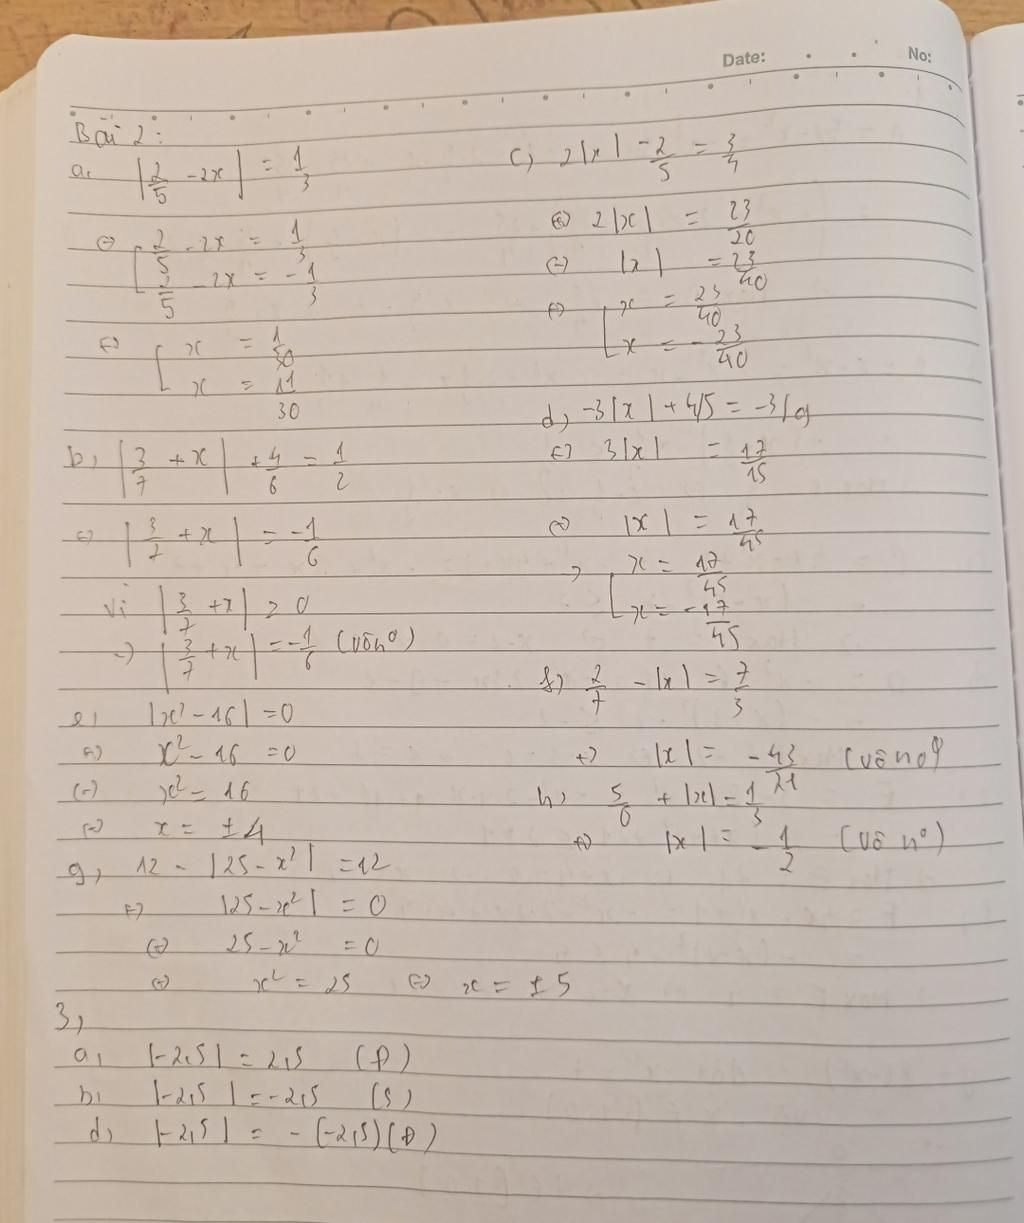 Date: No:
Bài 2:
a, |2/5 - 2x| = 1/3
⇔ [ 2/5 - 2x = 1/3
2/5 - 2x = -1/3
⇔ [ x = 1/30
x = 11/30
b, |3/7 + x| + 4/6 = 1/2
⇔ |3/7 + x| = -1/6
Vì |3/7 + x| ≥ 0
→ |3/7 + x| = -1/6 (vô n°)
e, |x² - 16| = 0
⇔ x² - 16 = 0
⇔ x² = 16
⇔ x = ±4
g, 12 - |25 - x²| = 12
⇔ |25 - x²| = 0
⇔ 25 - x² = 0
⇔ x² = 25 ⇔ x = ±5
c, 2|x| - 2/5 = 3/4
⇔ 2|x| = 23/20
⇔ |x| = 23/40
⇔ [ x = 23/40
x = -23/40
d, -3|x| + 4/5 = -3/9
⇔ 3|x| = 17/15
⇔ |x| = 17/45
→ [ x = 17/45
x = -17/45
f, 2/7 - |x| = 7/3
⇔ |x| = -43/21 (vô n°)
h, 5/6 + |x| = 1/3
⇔ |x| = -1/2 (vô n°)
3,
a, |-2,5| = 2,5 (Đ)
b, |-2,5| = -2,5 (S)
d, |-2,5| = -(-2,5) (Đ)